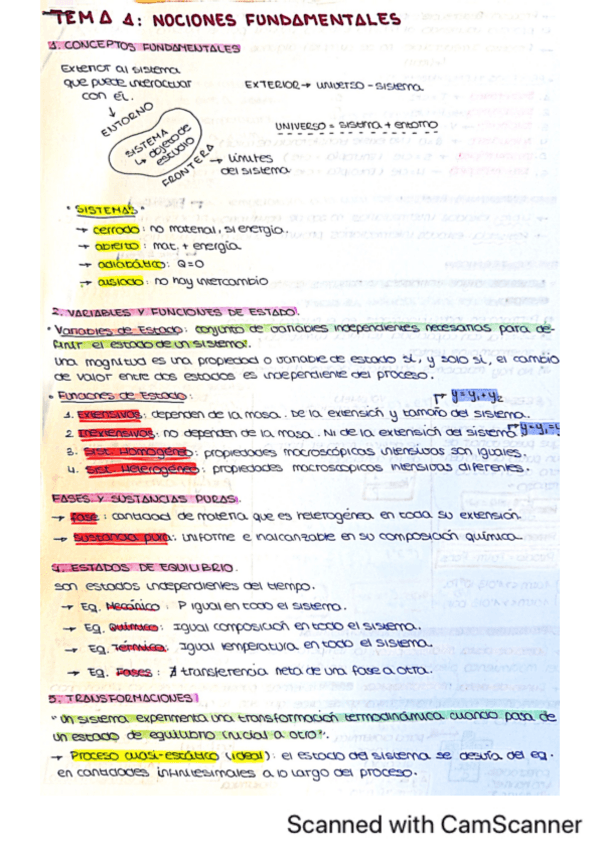 TEMA 1: NOCIONES FUNDAMENTALES
1. CONCEPTOS FUNDAMENTALES
Exterior al sistema
que puede interactuar
con él.
EXTERIOR → universo - sistema
ENTORNO
UNIVERSO = sistema + entorno
SISTEMA
↳ objeto de
estudio
FRONTERA
→ límites
del sistema
• SISTEMAS •
→ cerrado: no material, si energía.
→ abierto: mat. + energía
→ adiabático: Q=0
→ aislado: no hay intercambio
2. VARIABLES Y FUNCIONES DE ESTADO.
• Variables de Estado: conjunto de variables independientes necesarias para de-
finir el estado de un sistema.
una magnitud es una propiedad o variable de estado si, y solo si, el cambio
de valor entre dos estados es independiente del proceso.
• Funciones de Estado:
y=y₁+y₂
1. Extensivos: dependen de la masa. De la extensión y tamaño del sistema.
2. Inextensivos: no dependen de la masa. Ni de la extensión del sistema
3. Sist. Homogéneo: propiedades macroscópicas intensivas son iguales.
4. Sist. Heterogéneo: propiedades macroscópicas intensivas diferentes.
FASES Y SUSTANCIAS PURAS.
→ Fase: cantidad de materia que es heterogénea en toda su extensión.
→ Sustancia pura: uniforme e inalcanzable en su composición química.
4. ESTADOS DE EQUILIBRIO.
son estados independientes del tiempo.
→ Eq. Mecánico: P igual en todo el sistema.
→ Eq. Químico: Igual composición en todo el sistema.
→ Eq. Térmico: Igual temperatura en todo el sistema.
→ Eq. Fases: ∄ transferencia neta de una fase a otra.
5. TRANSFORMACIONES
"un sistema experimenta una transformación termodinámica cuando pasa de
un estado de equilibrio inicial a otro".
→ Proceso cuasi-estático (ideal): el estado del sistema se desvía del eq.
en cantidades infinitesimales a lo largo del proceso.
Scanned with CamScanner